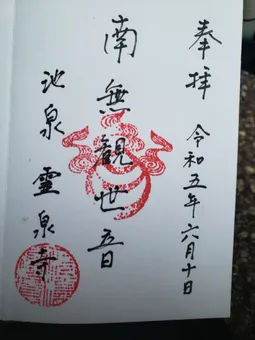 奉拝 令和五年六月十日
南無観世音
池泉靈泉寺